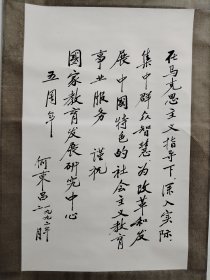 在马克思主义指导下,深入实际
集中群众智慧为改革和发
展中国特色的社会主义教育
事业服务 谨祝
国家教育发展研究中心
五周年
何东昌
一九九二年
月